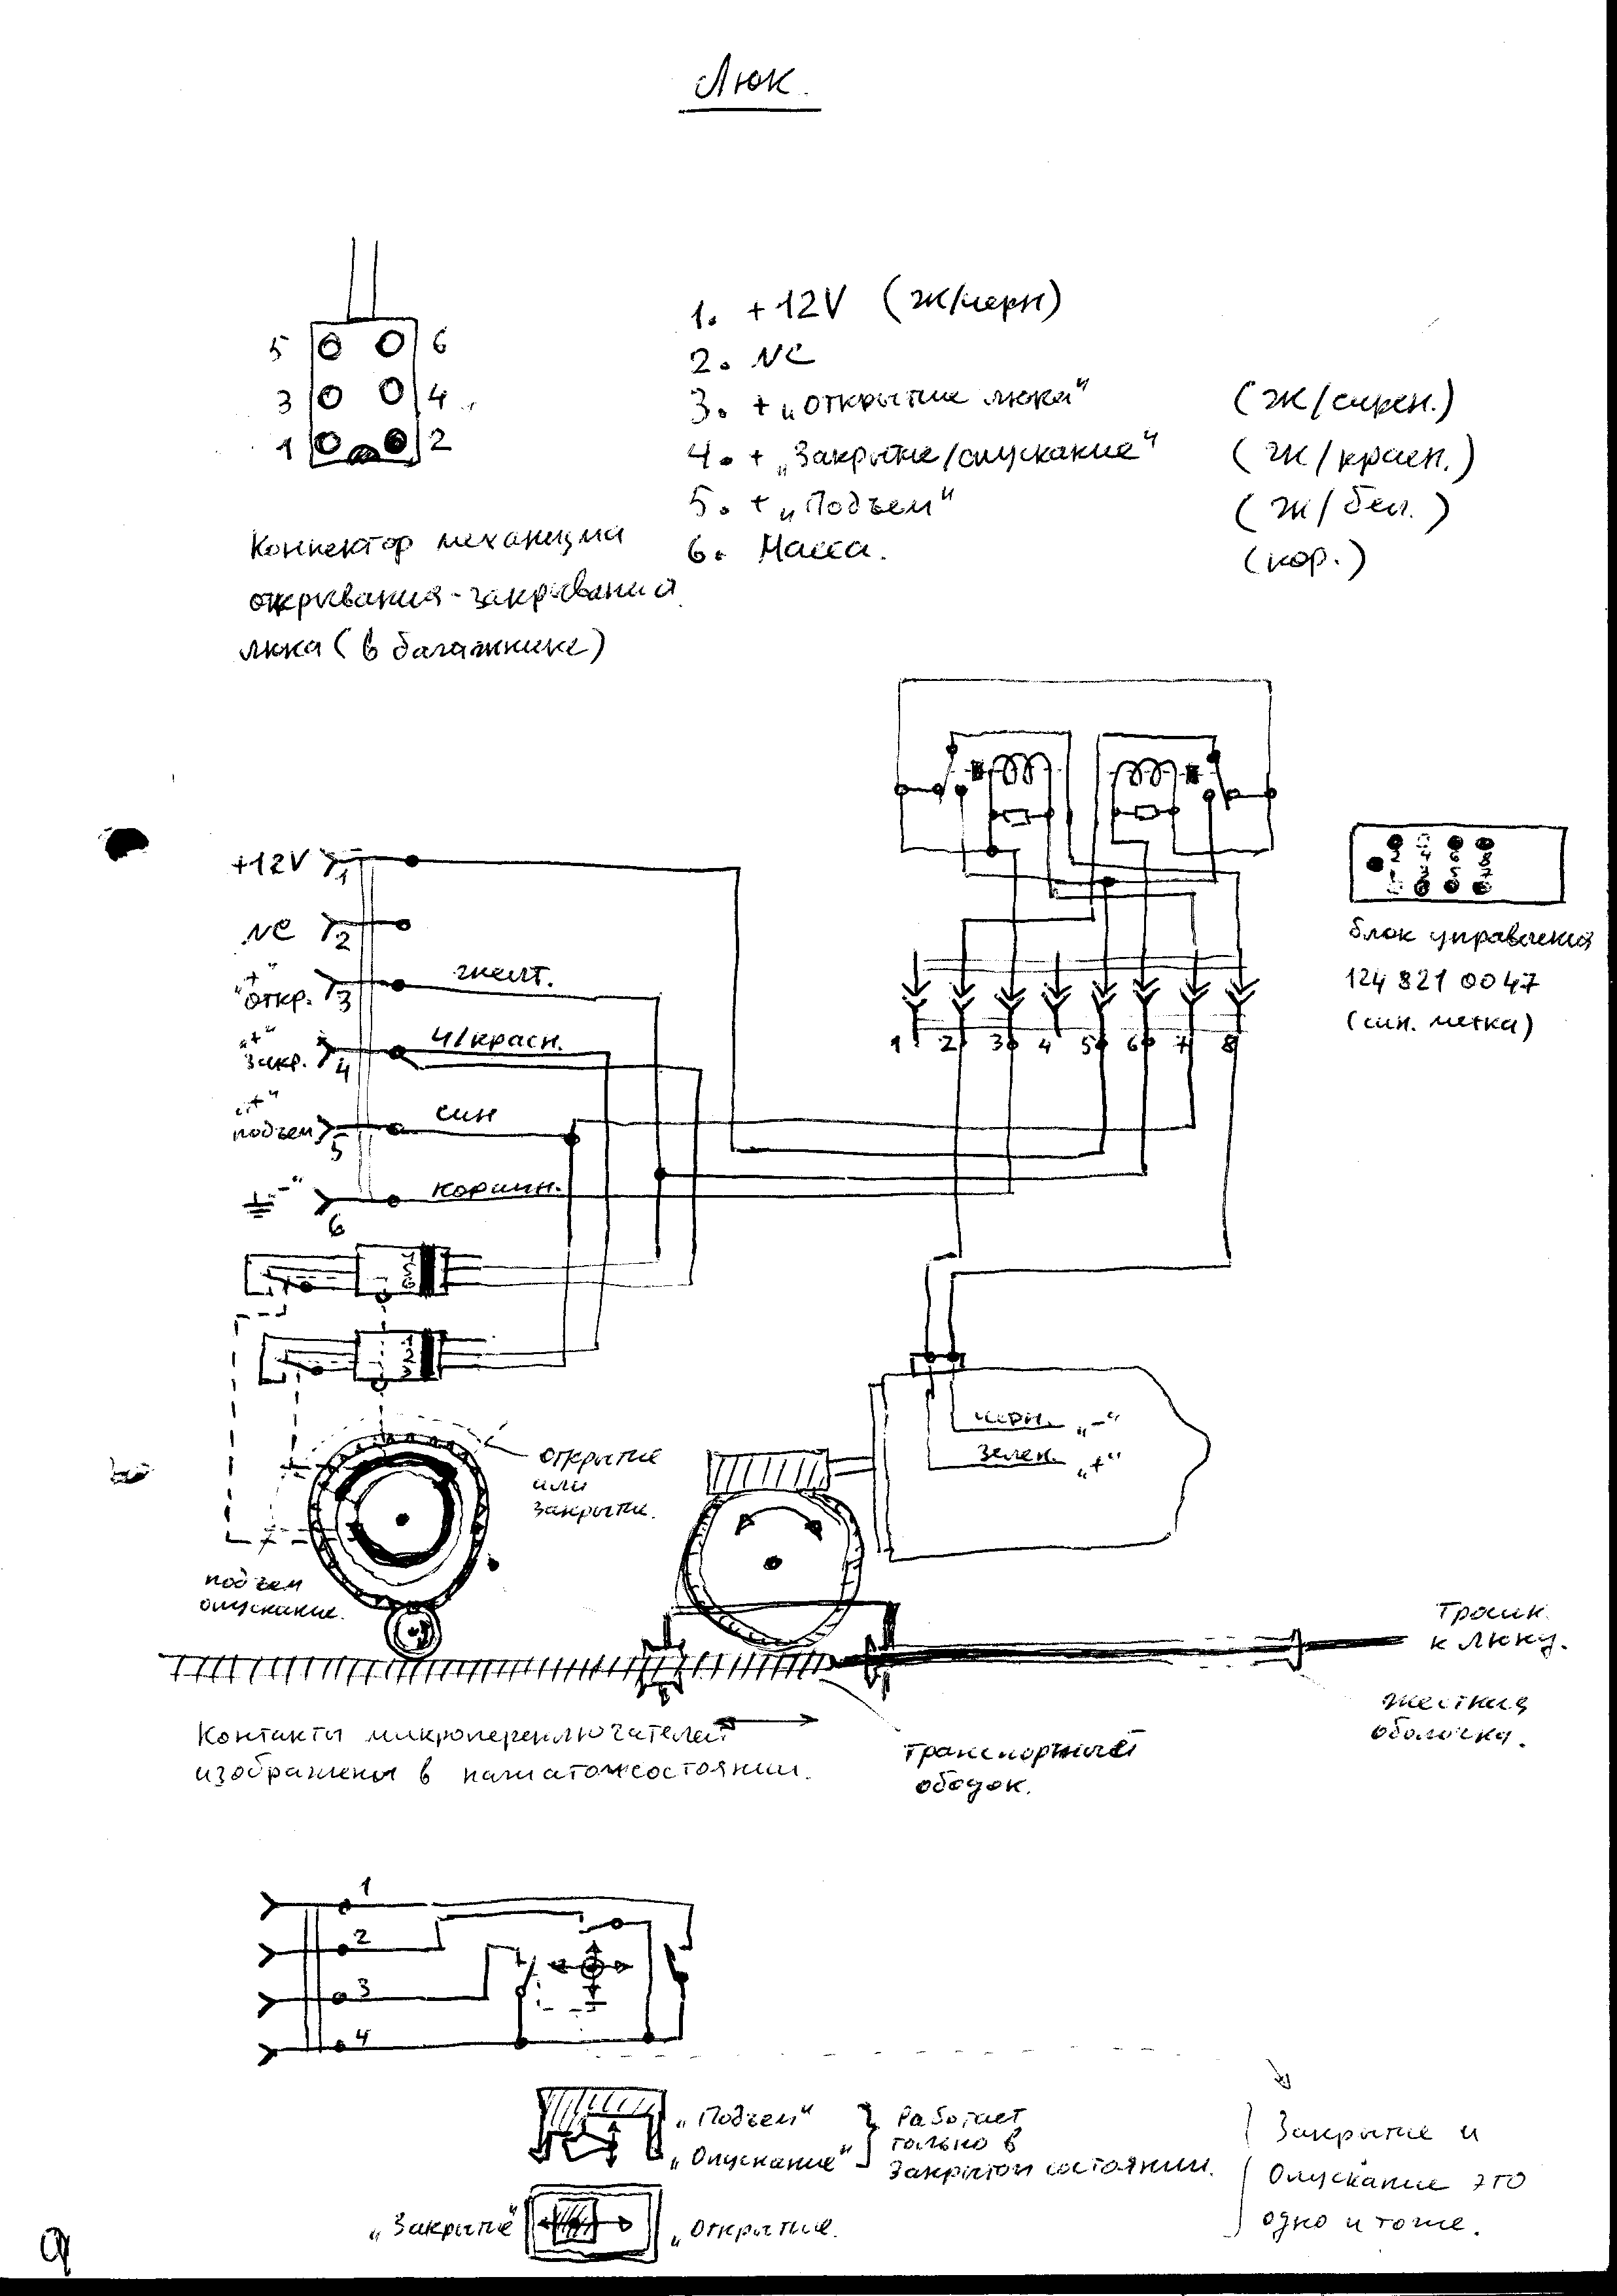 Люк.
5 6
3 4
1 2
Коннектор механизма
открывания-закрывания
люка (в багажнике)
1. +12V (ж/черн)
2. NC
3. + „Открытие люка" (ж/сирен.)
4. + „Закрытие/опускание" (ж/красн.)
5. + „Подъем" (ж/бел.)
6. Масса. (кор.)
2 4 6 8
1 3 5 7
блок управления
124 821 0047
(син. метка)
+12V 1
NC 2
"+"
"откр. 3 желт.
"+"
закр. 4 ч/красн.
"+"
подъем 5 син
„-" 6 коричн.
1 2 3 4 5 6 7 8
4
5
6
1
2
3
черн. „-"
зелен. „+"
открытие
или
закрытие.
подъем
опускание.
Тросик
к люку.
жесткая
оболочка.
Транспортный
ободок.
Контакты микропереключателей
изображены в нажатом состоянии.
1
2
3
4
„Подъем"
„Опускание"
Работает
только в
закрытом состоянии.
Закрытие и
Опускание это
одно и тоже.
„Закрытие"
„Открытие.